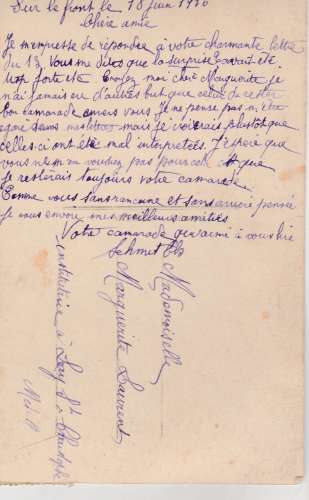 Sur le front le 18 juin 19
Chère amie
Je m'empresse de répondre à votre charmante lettre
du 13. Vous me dites que la surprise avait été
forte été Croyez moi chère Marguerite je
n'ai jamais eu d'autres but que celui de rester
bon camarade envers vous. Je ne pense pas m'être
égaré dans mes lettres mais je croirais plustot que
celles-ci ont été mal interpretées. J'espère que
vous ne m'en voudrez pas pour cela et que
je resterais toujours votre camarade
Comme vous sans rancune et sans arrière pensée
je vous envoie mes meilleurs amitiés
Votre camarade qui aime à vous lire
Schmit
Mademoiselle
Marguerite Laurent
institutrice à Lay St Christophe